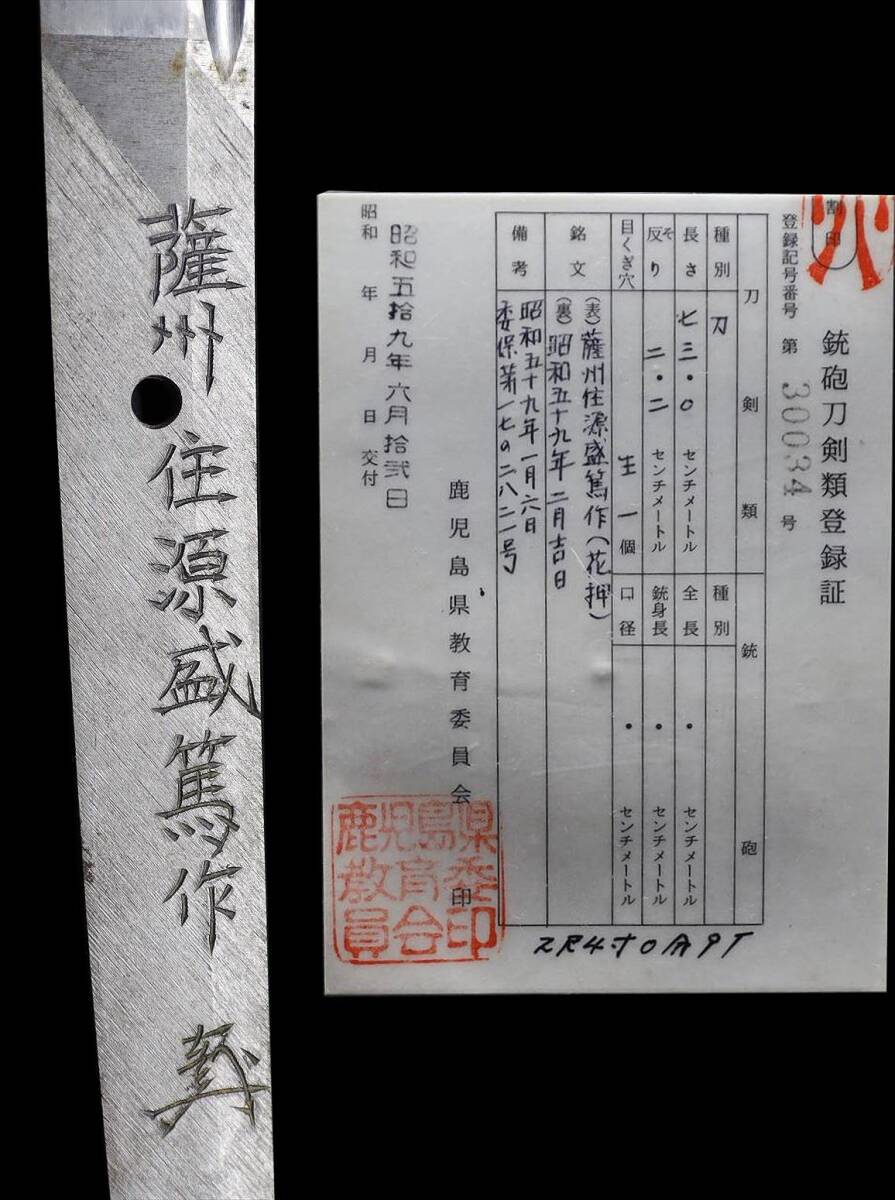 薩州住源盛篤作
銃砲刀剣類登録証
割印
登録記号番号 第 30034 号
刀剣類
銃砲
種別 刀
種別
長さ 七三・〇 センチメートル
全長 ・ センチメートル
反り そ 二・二 センチメートル
銃身長 ・ センチメートル
目くぎ穴 生 一個
口径 ・ センチメートル
銘文 (表)薩州住源盛篤作(花押)
(裏)昭和五十九年二月吉日
備考 昭和五十九年一月六日
委保第一七の二八二一号
鹿児島県教育委員会 印
昭和五拾九年六月拾弐日
昭和 年 月 日 交付
鹿児島県
教育委
員会印